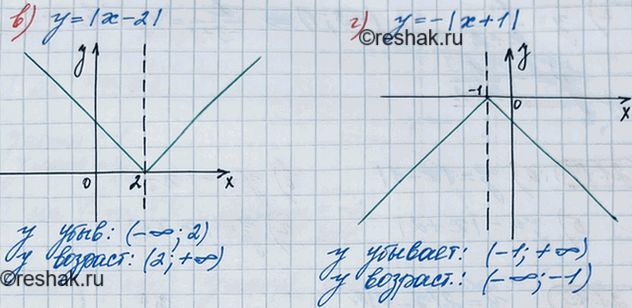 в) y = |x-2|
y
0
2
x
y убыв: (-∞; 2)
y возраст: (2; +∞)
©reshak.ru
г) y = -|x+1|
©reshak.ru
y
-1
0
x
y убывает: (-1; +∞)
y возраст.: (-∞; -1)